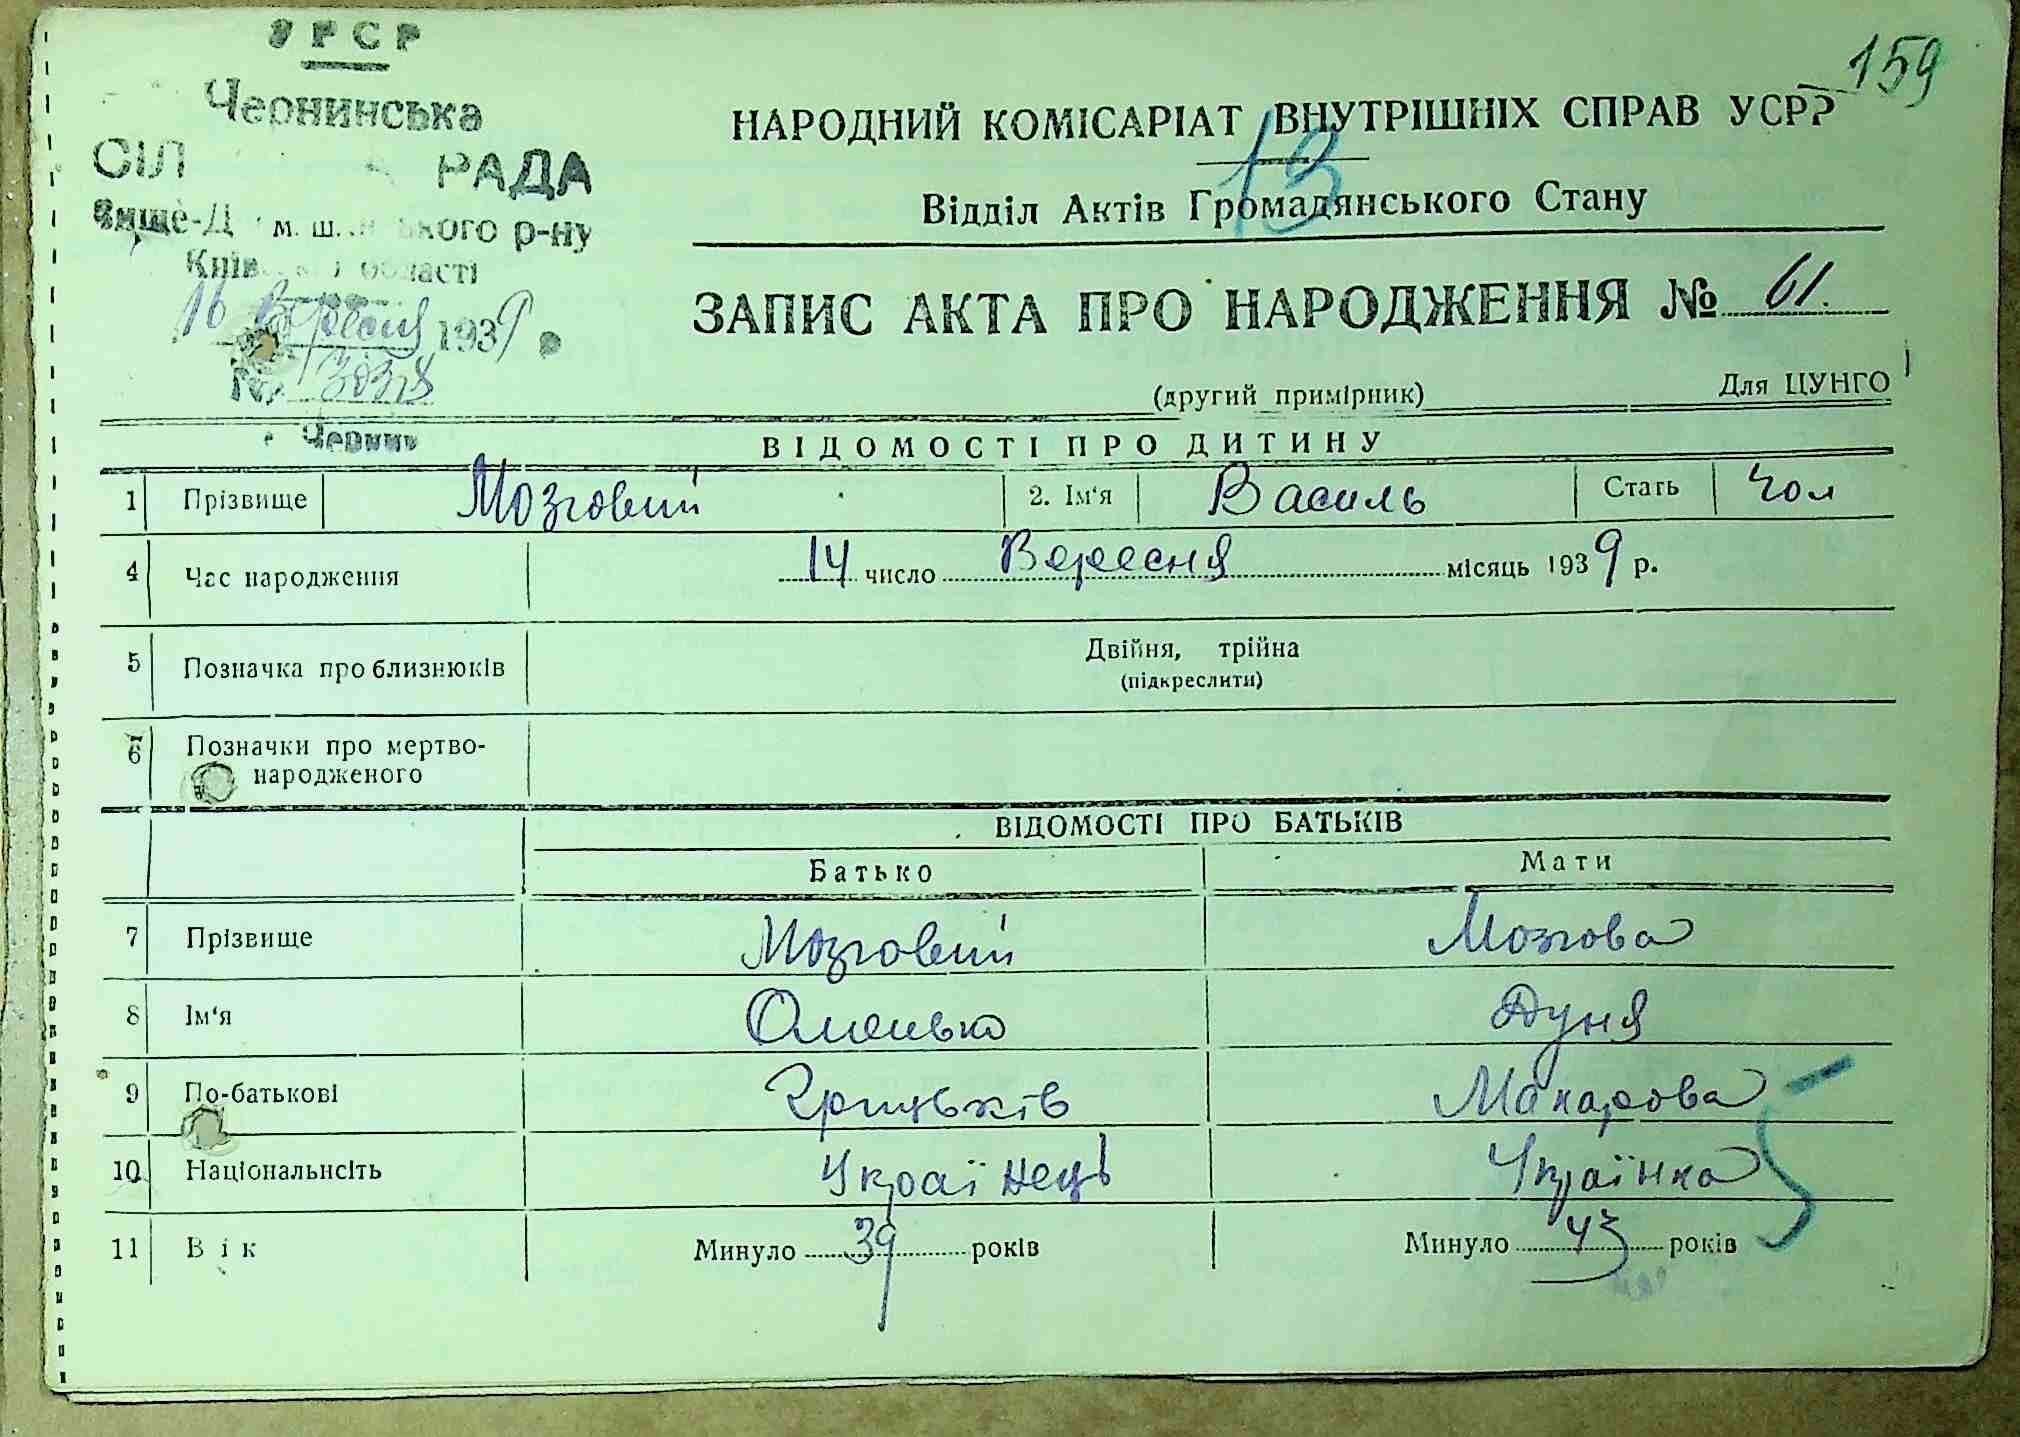 УРСР
159
Чернинська
НАРОДНИЙ КОМІСАРІАТ ВНУТРІШНІХ СПРАВ УСРР
13
СІЛ РАДА
Відділ Актів Громадянського Стану
Вище-Д м.ш. ького р-ну
Київ області
ЗАПИС АКТА ПРО НАРОДЖЕННЯ № 61.
16 Вересня 1939
№
(другий примірник) Для ЦУНГО
Чернин
ВІДОМОСТІ ПРО ДИТИНУ
1 Прізвище Мозговий 2. Ім'я Василь Стать Чол
4 Час народження 14 число Вересня місяць 1939 р.
5 Позначка про близнюків Двійня, трійна
(підкреслити)
6 Позначки про мертво-
народженого
ВІДОМОСТІ ПРО БАТЬКІВ
Батько Мати
7 Прізвище Мозговий Мозгова
8 Ім'я Омелько Дуня
9 По-батькові Грицьків Макарова
10 Національнсіть Українець Українка
11 Вік Минуло 39 років Минуло 43 років